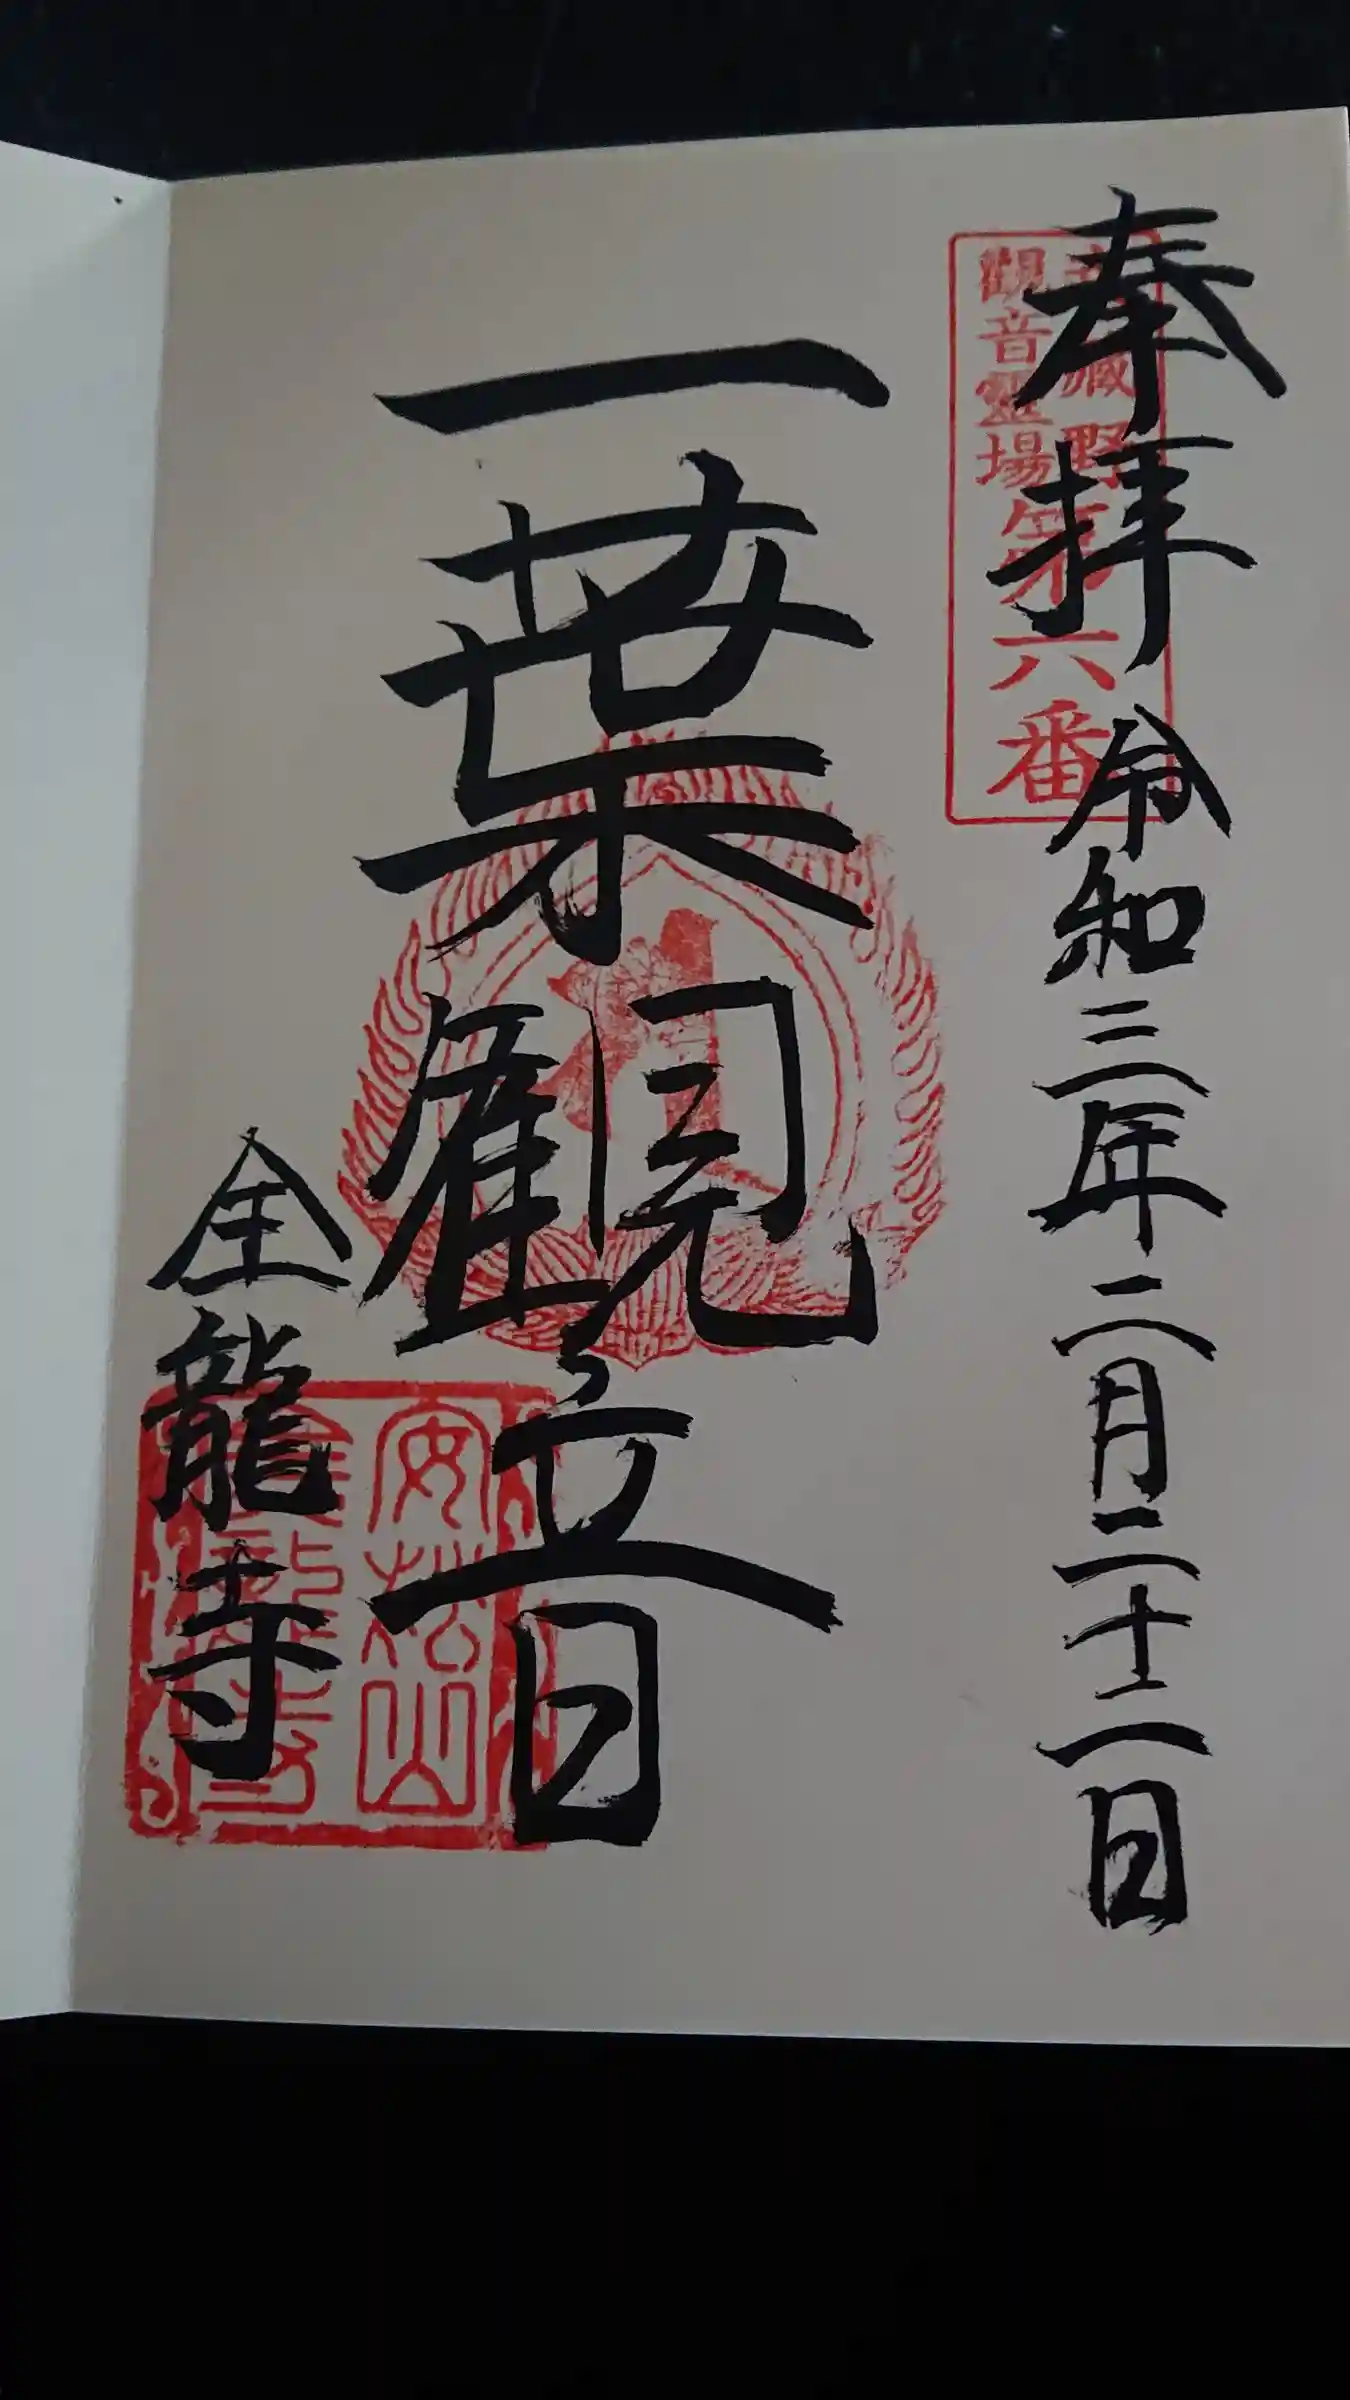 奉拝 令和三年二月二十二日
武蔵野
觀音霊場
第六番
一葉観音
全龍寺
安松山
金龍寺